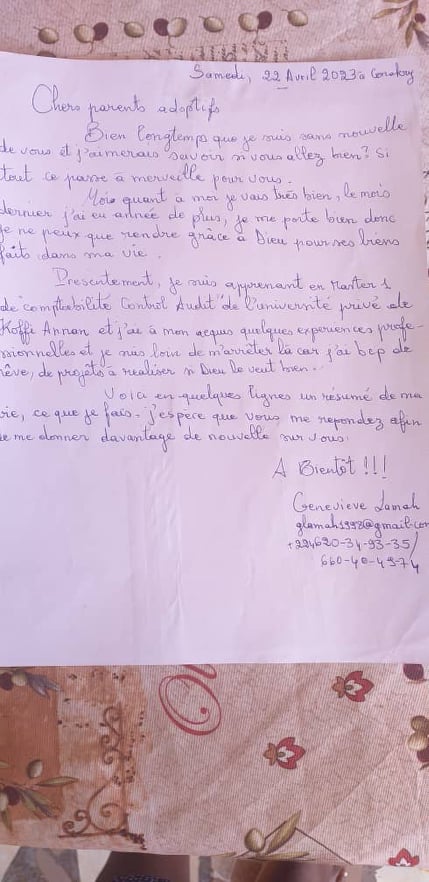 Samedi, 22 Avril 2023 à Conakry
Chers parents adoptifs
Bien longtemps que je suis sans nouvelle
de vous et j'aimerais savoir si vous allez bien? Si
tout ce passe à merveille pour vous.
Mois quant à moi je vais très bien, le mois
dernier j'ai eu année de plus, je me porte bien donc
je ne peux que rendre grâce à Dieu pour ses biens
faits dans ma vie.
Presentement, je suis apprenant en Master 1
de "comptabilité Control Audit" de l'université privé de
Koffi Annan et j'ai à mon acquis quelques experiences profe-
ssionnelles et je suis loin de m'arrêter là car j'ai bcp de
rêve, de projets à realiser si Dieu le veut bien.
Voici en quelques lignes un résumé de ma
vie, ce que je fais. j'espere que vous me repondez afin
de me donner davantage de nouvelle sur vous.
A Bientôt !!!
Genevieve Lamah
glamah1998@gmail.com
+224620-34-93-35/
660-40-4974
Ou